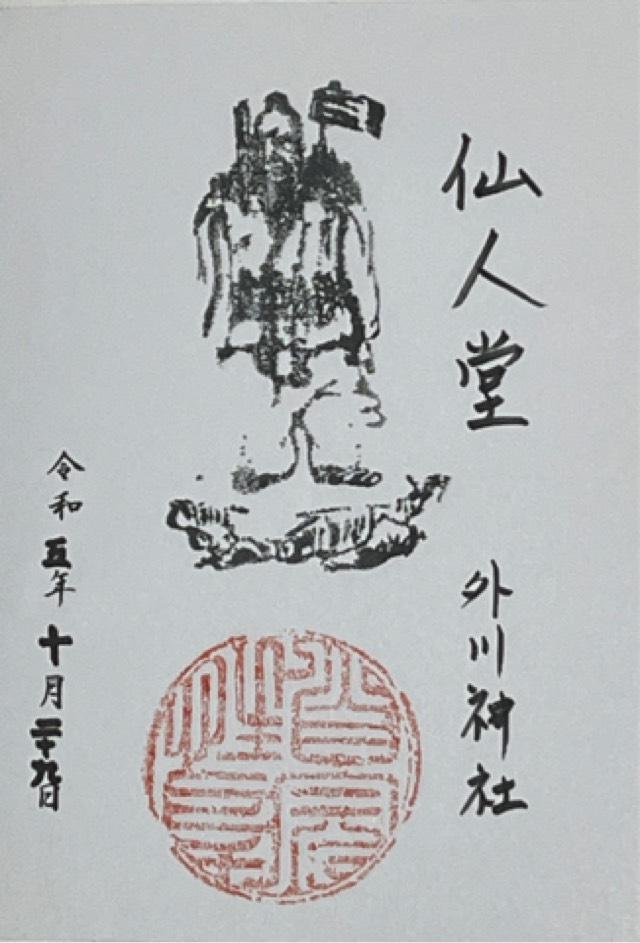 仙人堂
外川神社
令和五年十月二十九日